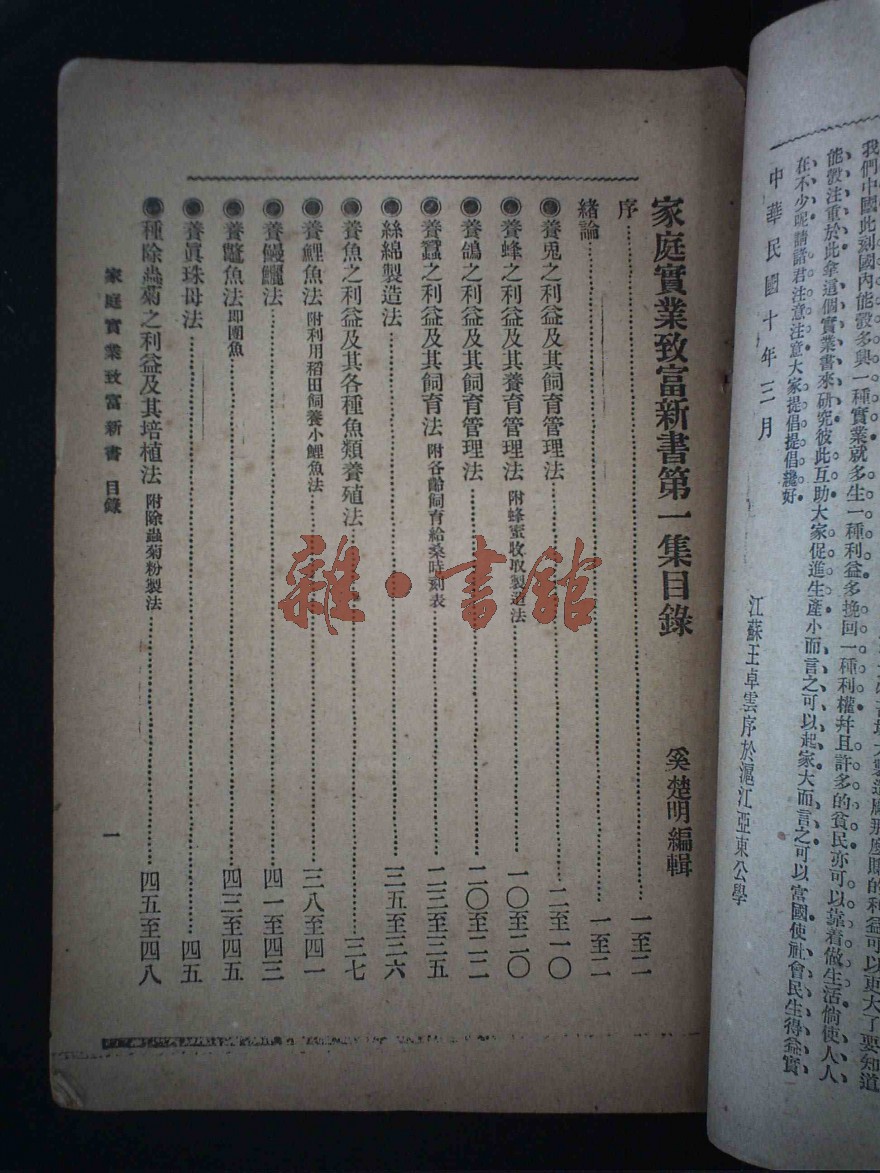 我們中國此刻國內能彀多興一種實業就多生一種利益多挽回一種利權幷且許多的貧民亦可以靠着做生活倘使人人
能彀注重於此拿這個實業書來硏究彼此互助大家促進生產小而言之可以起家大而言之可以富國使社會民生得益實
在不少呢請諸君注意注意大家提倡提倡纔好
中華民國十年三月
江蘇王卓雲序於滬江亞東公學
家庭實業致富新書第一集目錄
奚楚明編輯
序⋯⋯一至二
緒論⋯⋯一至二
◉養兎之利益及其飼育管理法⋯⋯二至一〇
◉養蜂之利益及其養育管理法 附蜂蜜收取製造法⋯⋯一〇至二〇
◉養鴿之利益及其飼育管理法⋯⋯二〇至二二
◉養蠶之利益及其飼育法 附各齡飼育給桑時刻表⋯⋯二三至三五
◉絲綿製造法⋯⋯三五至三六
◉養魚之利益及其各種魚類養殖法⋯⋯三七
◉養鯉魚法 附利用稻田飼養小鯉魚法⋯⋯三八至四一
◉養鰻鱺法⋯⋯四一至四三
◉養鼈魚法即團魚⋯⋯四三至四五
◉養眞珠母法⋯⋯四五
◉種除蟲菊之利益及其培植法 附除蟲菊粉製法⋯⋯四五至四八
家庭實業致富新書 目錄
一
雜·書館